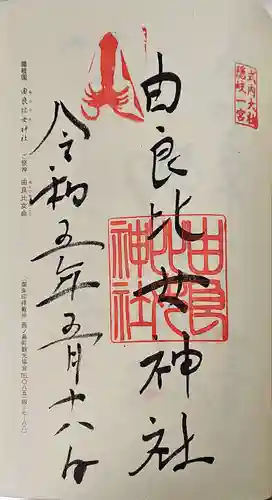 式内大社
隠岐一宮
由良比女神社
由良比女神社
令和五年五月十八日
隠岐国 由良比女神社 ご祭神 由良比女命